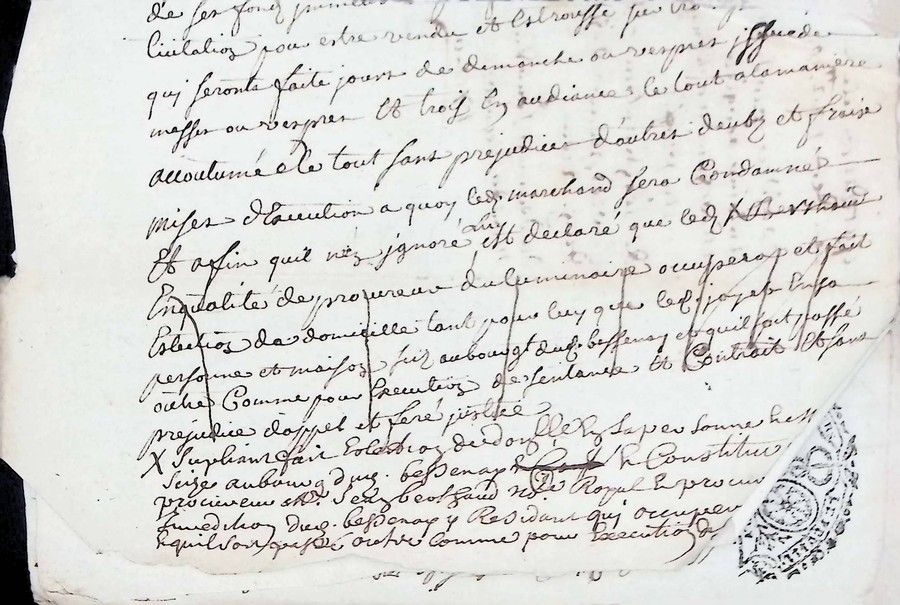 de ses fonds
licitation pour estre vendu et estroussé
qui seront faite jours de dimanche ou vespres issue de
messes ou vespres et trois en audiances le tout a la maniere
accoutumé e le tout sans prejudices d'autres deubz et fraix
mises d'execution a quoy led marchand sera Condamné
Et affin quil n'en jgnoré luy est declaré que led X Berthaud
En qualité de procureur du luminaire occuperat et fait
Eslection de domicille tant pour luy que led joyet En sa
personne et maison size au bourgt dud bessenay et quil soit passé
outre Comme pour Execution de sentance et Contrait Et sans
prejudice d'appel et feré justice
X supliant fait Eslection de domille En sa personne et
size au bourg dud. bessenay et Constitue
procureur Me. Jean berthaud nore Royal et procur
Juridition dud. bessenay y Residant qui occupera
et quil soit passé outre comme pour Execution de